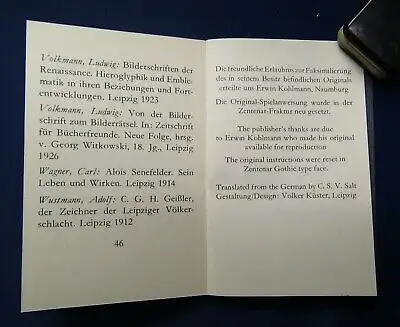 Volkmann, Ludwig: Bilderschriften der
Renaissance. Hieroglyphik und Emble-
matik in ihren Beziehungen und Fort-
entwicklungen. Leipzig 1923
Volkmann, Ludwig: Von der Bilder-
schrift zum Bilderrätsel. In: Zeitschrift
für Bücherfreunde. Neue Folge, hrsg.
v. Georg Witkowski, 18. Jg., Leipzig
1926
Wagner, Carl: Alois Senefelder. Sein
Leben und Wirken. Leipzig 1914
Wustmann, Adolf: C. G. H. Geißler,
der Zeichner der Leipziger Völker-
schlacht. Leipzig 1912
46
Die freundliche Erlaubnis zur Faksimilierung
des in seinem Besitz befindlichen Originals
erteilte uns Erwin Kohlmann, Naumburg
Die Original-Spielanweisung wurde in der
Zentenar-Fraktur neu gesetzt.
The publisher's thanks are due
to Erwin Kohlmann who made his original
available for reproduction
The original instructions were reset in
Zentenar Gothic type face.
Translated from the German by C. S. V. Salt
Gestaltung/Design: Volker Küster, Leipzig